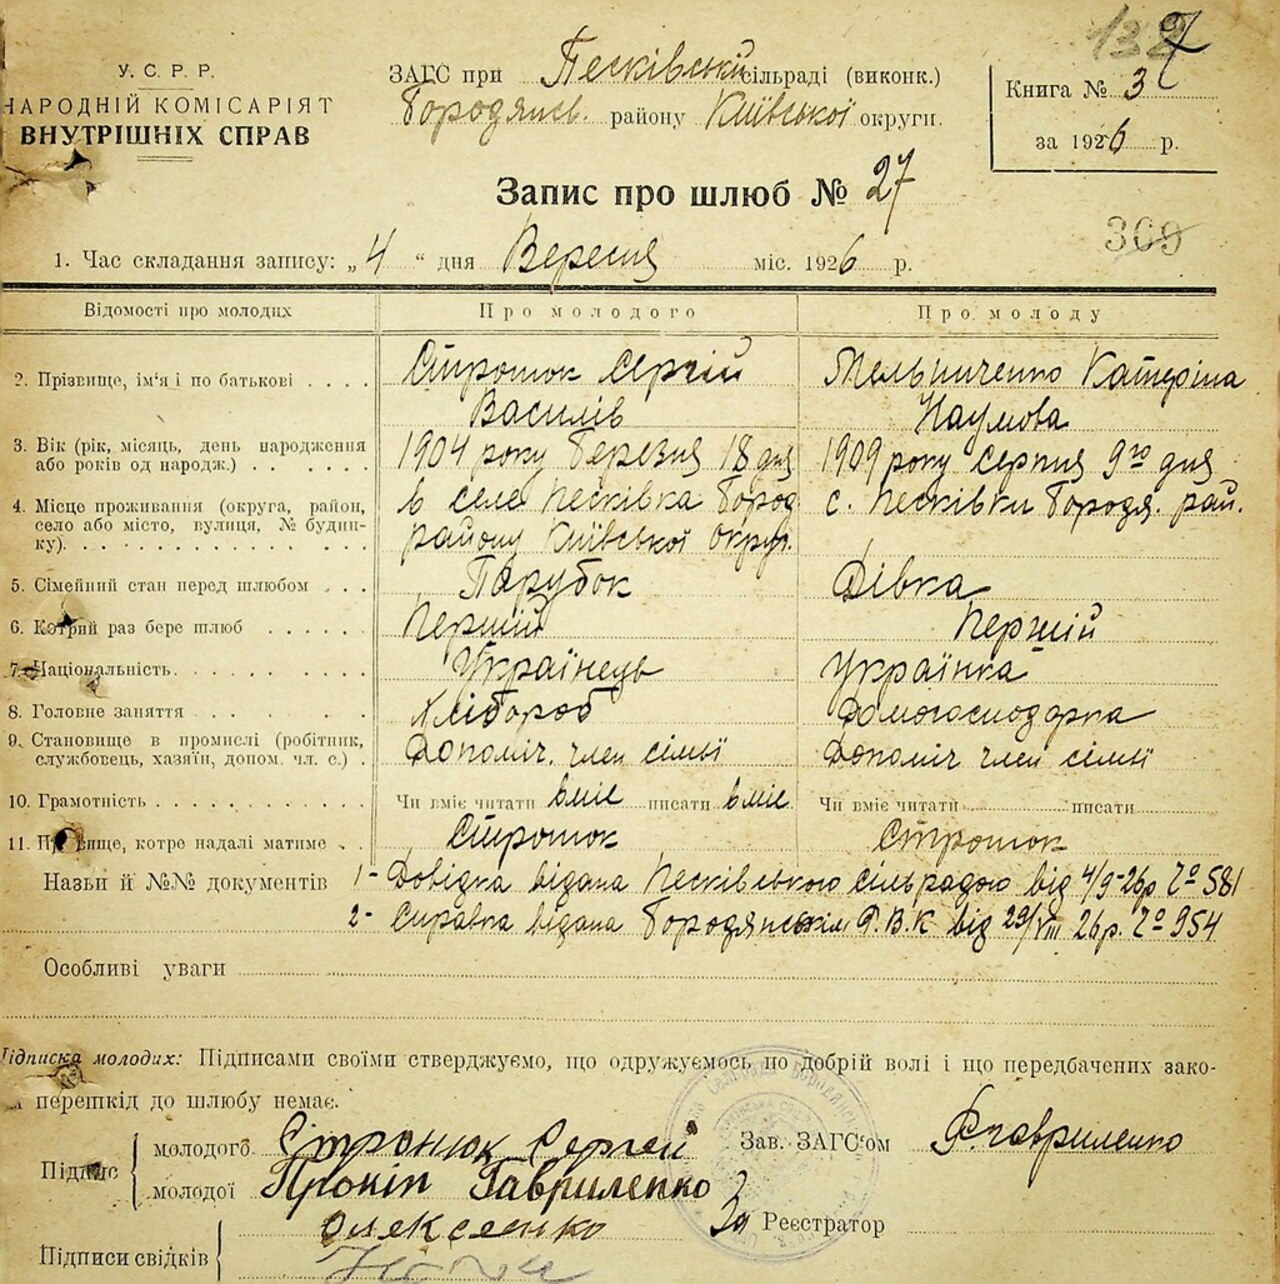 У. С. Р. Р.
НАРОДНІЙ КОМІСАРІЯТ
ВНУТРІШНІХ СПРАВ
ЗАГС при Песківській сільраді (виконк.)
Бородянсь. району Київської округи.
132
Книга № 3
за 1926 р.
Запис про шлюб № 27
309
1. Час складання запису: „4“ дня Вересня міс. 1926 р.
Відомості про молодих Про молодого Про молоду
2. Прізвище, ім'я і по батькові Строток Сергій Мельниченко Катеріна
Василів Наумова
3. Вік (рік, місяць, день народження 1904 року березня 18 дня 1909 року серпня 9го дня
або років од народж.)
4. Місце проживання (округа, район, в селе Песківка Бород. с. Песківки Бородя. рай.
село або місто, вулиця, № будин-
ку). району Київської округ.
5. Сімейний стан перед шлюбом Парубок Дівка
6. Котрий раз бере шлюб Перший Перший
7. Національність Українець Українка
8. Головне заняття Хлібороб Домогосподарка
9. Становище в промислі (робітник, Дополіч. член сімьї Дополіч член сімьї
службовець, хазяїн, допом. чл. с.)
10. Грамотність Чи вміє читати вміє писати вміє Чи вміє читати писати
11. Прізвище, котре надалі матиме Строток Строток
Назви й №№ документів 1- Довідка відана Песківською сільрадою від 4/9-26р Чо 581
2- Справка відана Бородянськім Р.В.К від 29/VIII 26р. Чо 954
Особливі уваги
Підписка молодих: Підписами своїми стверджуємо, що одружуємось по добрій волі і що передбачених зако-
перешкід до шлюбу немає.
Підпис
молодого Стронюк Сергей
Зав. ЗАГС'ом Гавриленко
молодої Прокіп Гавриленко
За Реєстратор
Підписи свідків Олексеенко